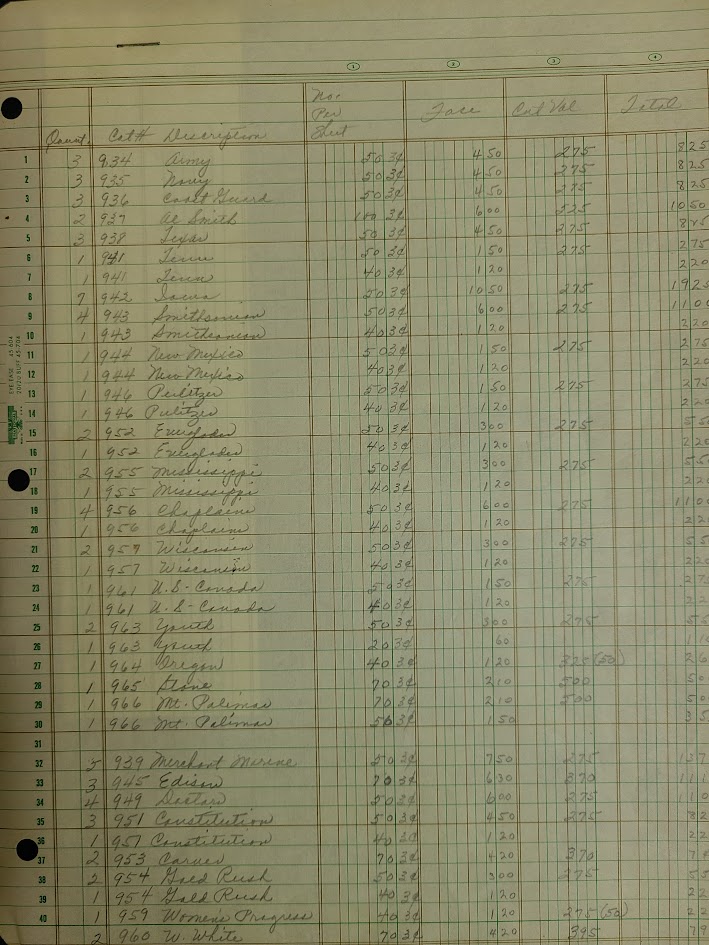 1 2 3 4
Quant. Cat# Description No. Per Sheet Face Cat Val Total
1 3 934 Army 50 3¢ 4 50 275 8 25
2 3 935 Navy 50 3¢ 4 50 275 8 25
3 3 936 Coast Guard 50 3¢ 4 50 275 8 25
4 2 937 Al Smith 100 3¢ 6 00 525 10 50
5 3 938 Texas 50 3¢ 4 50 275 8 25
6 1 941 Tenn 50 3¢ 1 50 275 2 75
7 1 941 Tenn 40 3¢ 1 20 2 20
8 7 942 Iowa 50 3¢ 10 50 275 19 25
9 4 943 Smithsonian 50 3¢ 6 00 275 11 00
10 1 943 Smithsonian 40 3¢ 1 20 2 20
11 1 944 New Mexico 50 3¢ 1 50 275 2 75
12 1 944 New Mexico 40 3¢ 1 20 2 20
13 1 946 Pulitzer 50 3¢ 1 50 275 2 75
14 1 946 Pulitzer 40 3¢ 1 20 2 20
15 2 952 Everglades 50 3¢ 3 00 275 5 5
16 1 952 Everglades 40 3¢ 1 20 2 20
17 2 955 Mississippi 50 3¢ 3 00 275 5 5
18 1 955 Mississippi 40 3¢ 1 20 2 2
19 4 956 Chaplains 50 3¢ 6 00 275 11 0
20 1 956 Chaplains 40 3¢ 1 20 2 2
21 2 957 Wisconsin 50 3¢ 3 00 275 5 5
22 1 957 Wisconsin 40 3¢ 1 20 2 2
23 1 961 U.S-Canada 50 3¢ 1 50 275 2 7
24 1 961 U.S-Canada 40 3¢ 1 20 2 2
25 2 963 Youth 50 3¢ 3 00 275 5 5
26 1 963 Youth 20 3¢ 60 1 1
27 1 964 Oregon 40 3¢ 1 20 (50) 2 6
28 1 965 Stone 70 3¢ 2 10 500 5 0
29 1 966 Mt. Palimar 70 3¢ 2 10 500 5 0
30 1 966 Mt. Palimar 50 3¢ 1 50 3 5
31
32 5 939 Merchant Marine 50 3¢ 7 50 275 13 7
33 3 945 Edison 70 3¢ 6 30 370 11 1
34 4 949 Doctors 50 3¢ 6 00 275 11 0
35 3 951 Constitution 50 3¢ 4 50 275 8 2
36 1 951 Constitution 40 3¢ 1 20 2 2
37 2 953 Carver 70 3¢ 4 20 370 7 4
38 2 954 Gold Rush 50 3¢ 3 00 275 5 5
39 1 954 Gold Rush 40 3¢ 1 20 2 2
40 1 959 Womens Progress 40 3¢ 1 20 275 (50) 2 2
2 960 W. White 70 3¢ 4 20 395 7 9